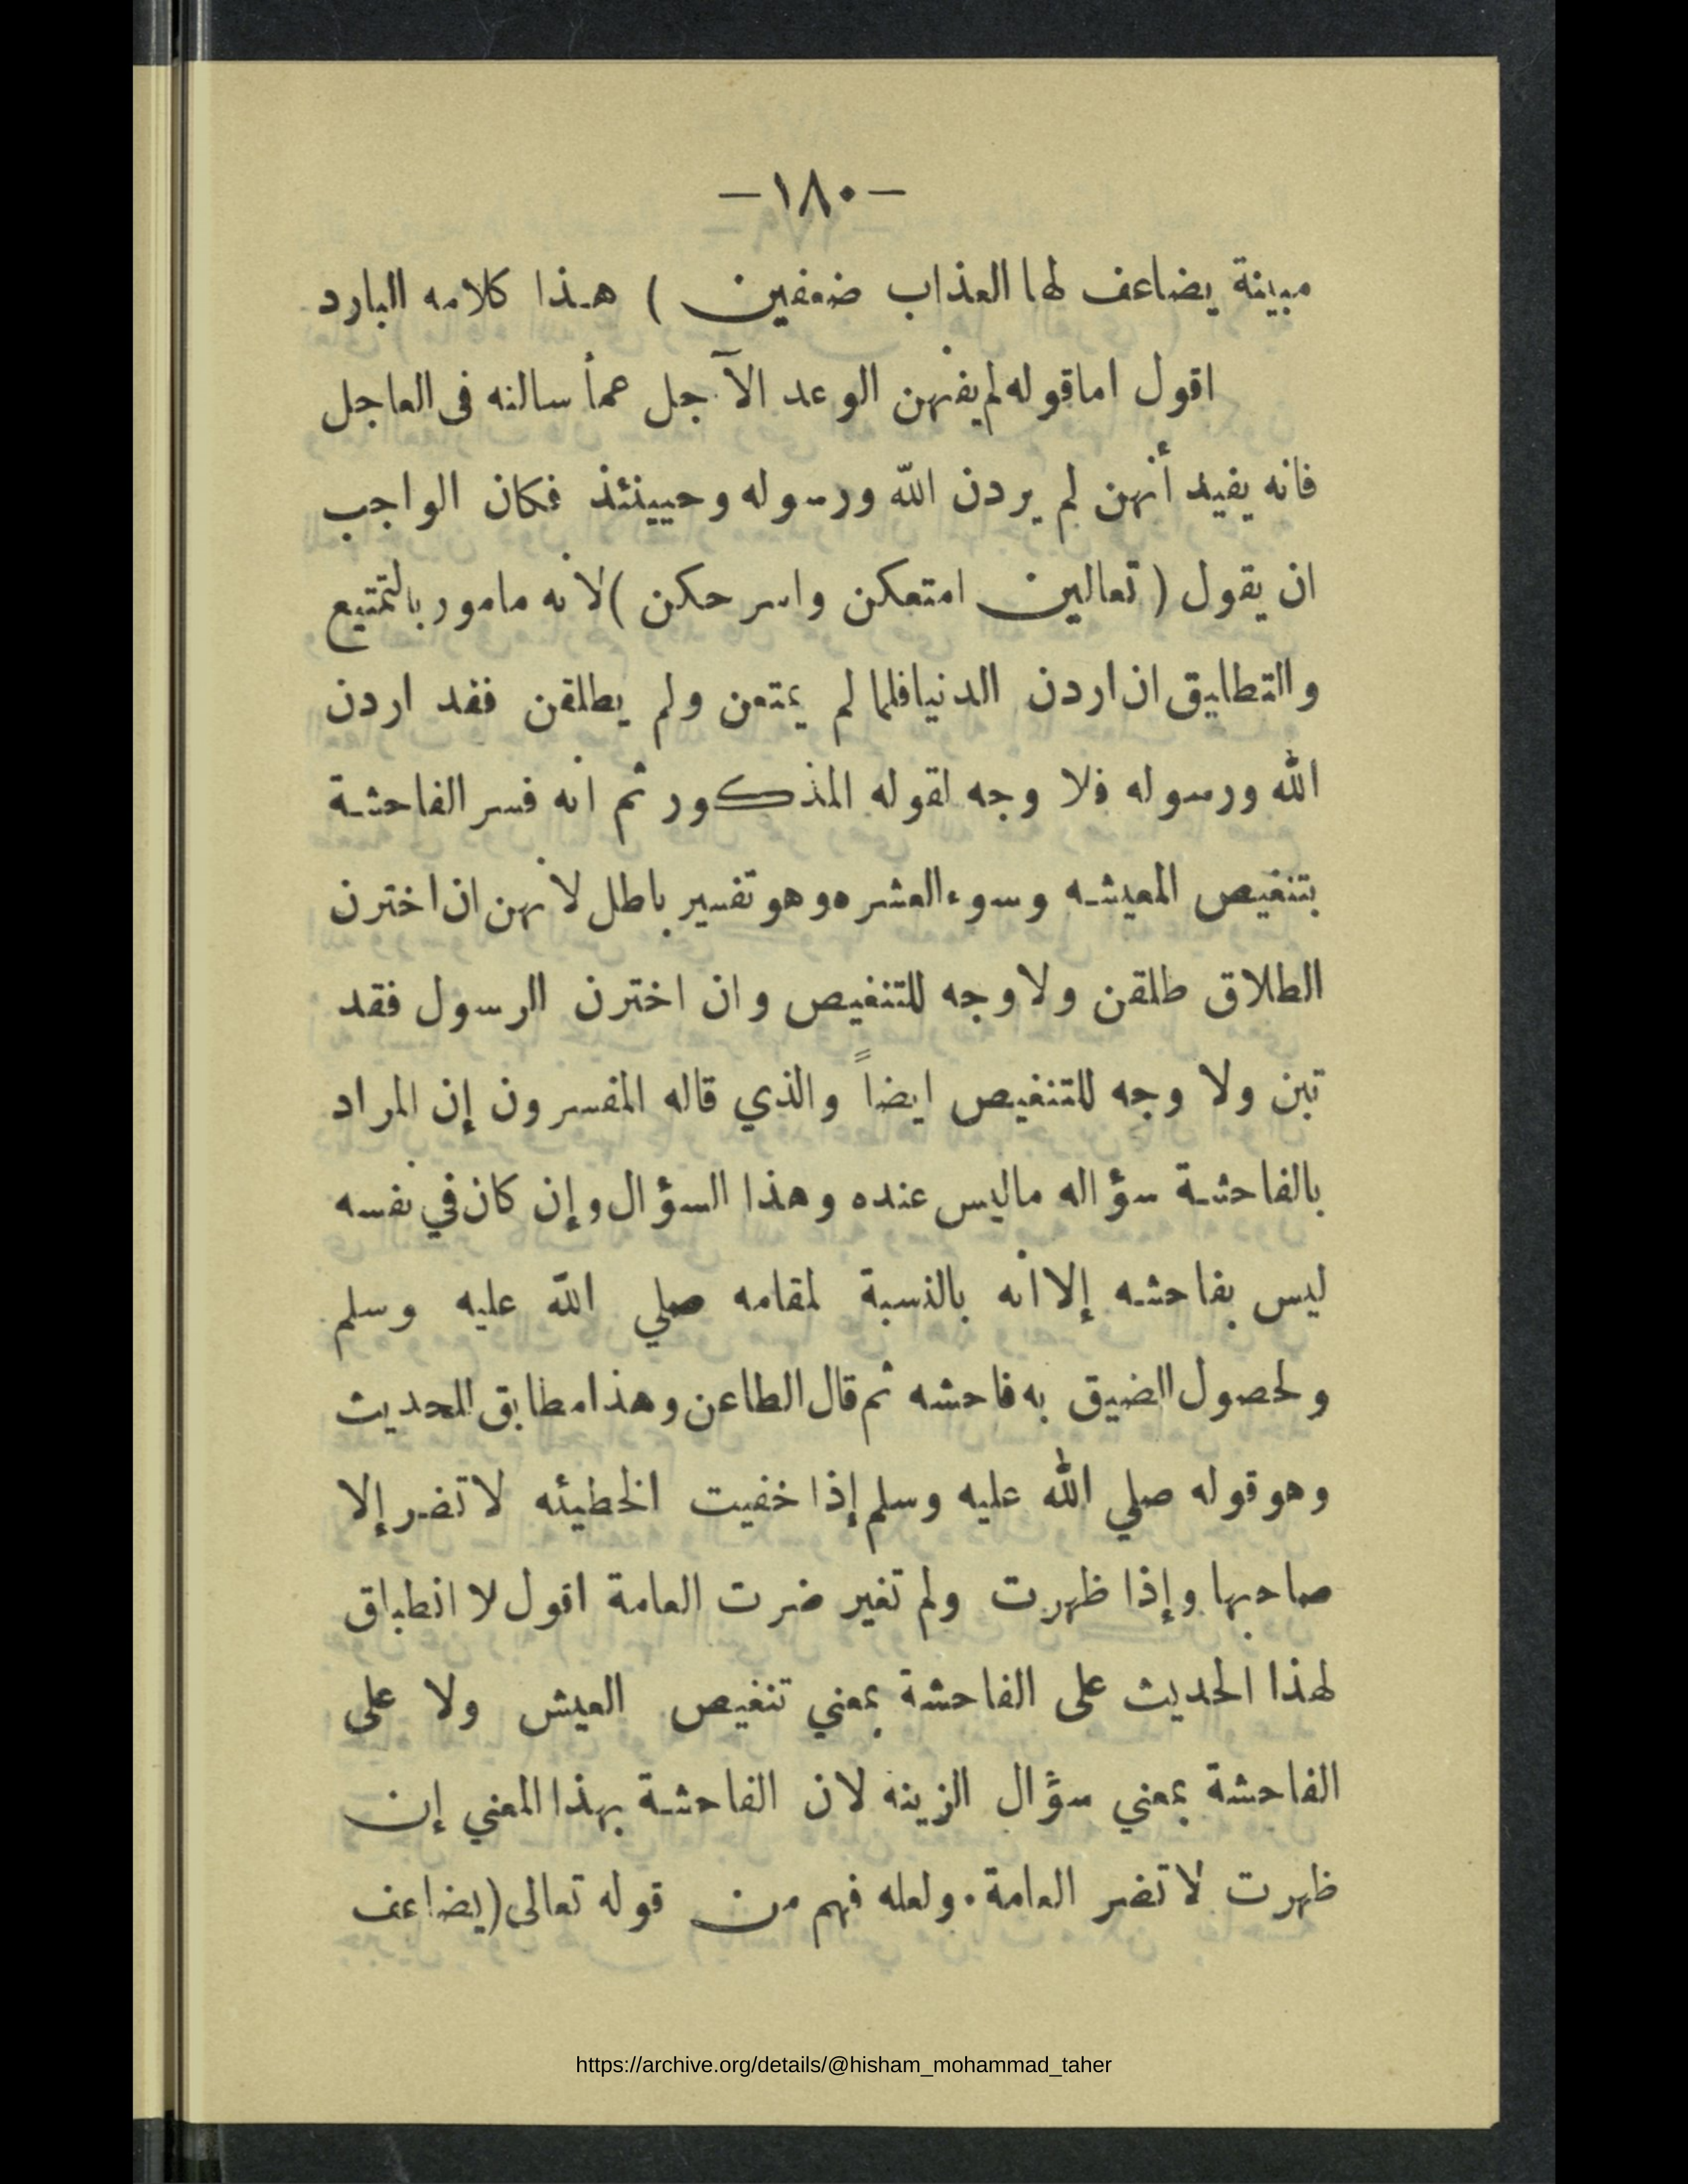 —١٨٠—
مبينة يضاعف لها العذاب ضعفين ) هذا كلامه البارد
اقول اما قوله لم يفهن الوعد الآجل عمأ سالنه فى العاجل
فانه يفيد أنهن لم يردن الله ورسوله وحيينئذ فكان الواجب
ان يقول ( تعالين امتعكن واسرحكن ) لانه مامور بالتمتيع
والتطليق ان اردن الدنيا فلما لم يمتعن ولم يطلقن فقد اردن
الله ورسوله فلا وجه لقوله المذكور ثم انه فسر الفاحشة
بتنغيص المعيشه وسوء العشره وهو تفسير باطل لانهن ان اخترن
الطلاق طلقن ولا وجه للتنغيص وان اخترن الرسول فقد
تبن ولا وجه للتنغيص ايضاً والذي قاله المفسرون إن المراد
بالفاحشة سؤاله ماليس عنده وهذا السؤال وإن كان في نفسه
ليس بفاحشه إلا انه بالنسبة لمقامه صلي الله عليه وسلم
ولحصول الضيق به فاحشه ثم قال الطاعن وهذا مطابق للحديث
وهو قوله صلي الله عليه وسلم إذا خفيت الخطيئه لا تضر إلا
صاحبها وإذا ظهرت ولم تغير ضرت العامة اقول لا انطباق
لهذا الحديث على الفاحشة بمعني تنغيص العيش ولا على
الفاحشة بمعني سؤال الزينه لان الفاحشة بهذا المعني إن
ظهرت لا تضر العامة . ولعله فهم من قوله تعالى ( يضاعف
https://archive.org/details/@hisham_mohammad_taher